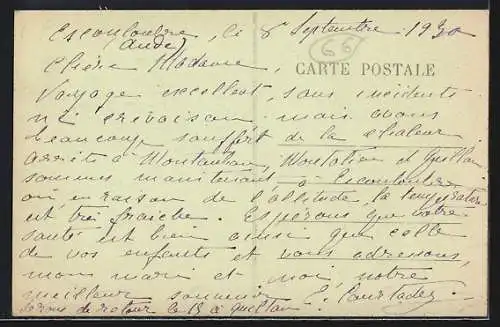 Escouloubre, le 8 Septembre 1930
(Aude)
66
Chère Madame,
CARTE POSTALE
Voyage excellent, sans incidents
ni crevaison mais avons
beaucoup souffert de la chaleur
arrêts à Montauban, et Quillan
sommes maintenant à Escouloubre
où, en raison de l'altitude la température
est très fraîche. Espérons que votre
santé est bien ainsi que celle
de vos enfants et vous adressons,
mon mari et moi, notre
meilleur souvenir
serons de retour le 15 à Quillan